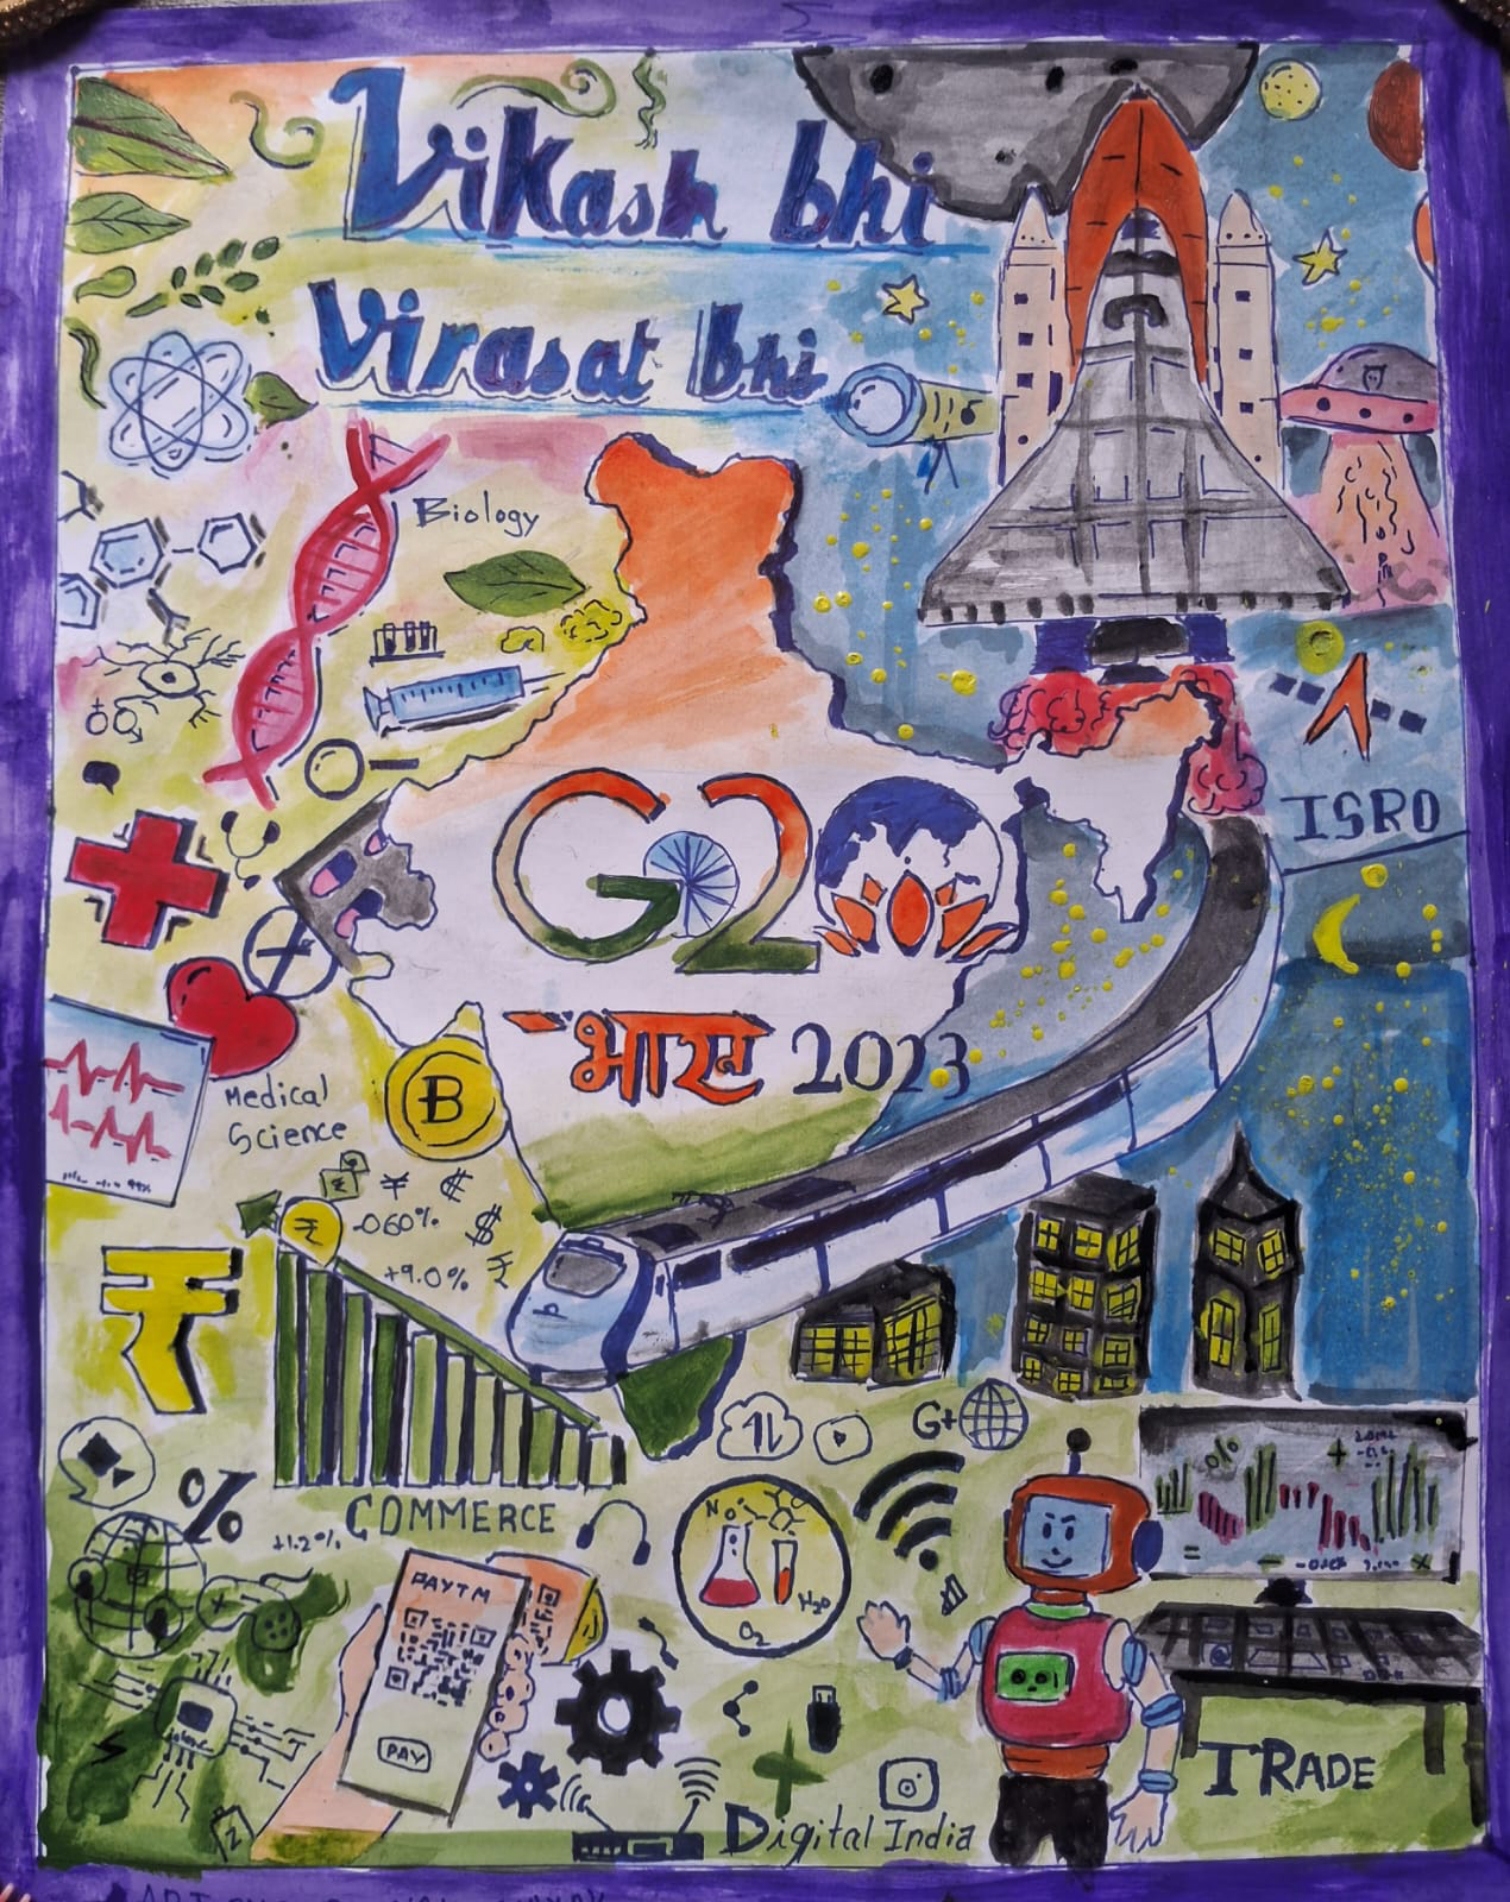 Vikash bhi
Virasat bhi
Biology
ISRO
G20
भारत 2023
B
Medical
Science
₹ ¥ ₡
-060% $
+9.0% ₹
₹
₹
G+
%
COMMERCE
+1.2%
NO
H2O
O2
PAYTM
PAY
TRADE
Digital India